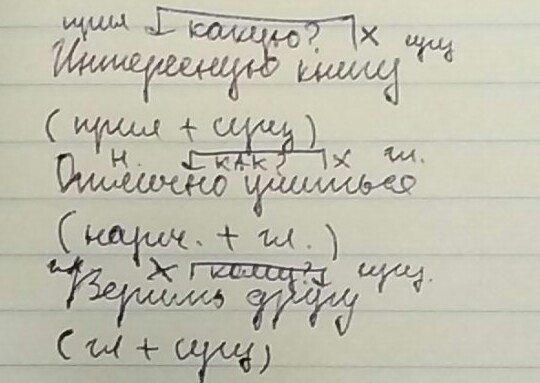 прил какую? х сущ
Интересную книгу
(прил + сущ)
н. как? х гл.
Отлично учиться
(нареч. + гл.)
гл х кому? сущ.
Верить другу
(гл + сущ)